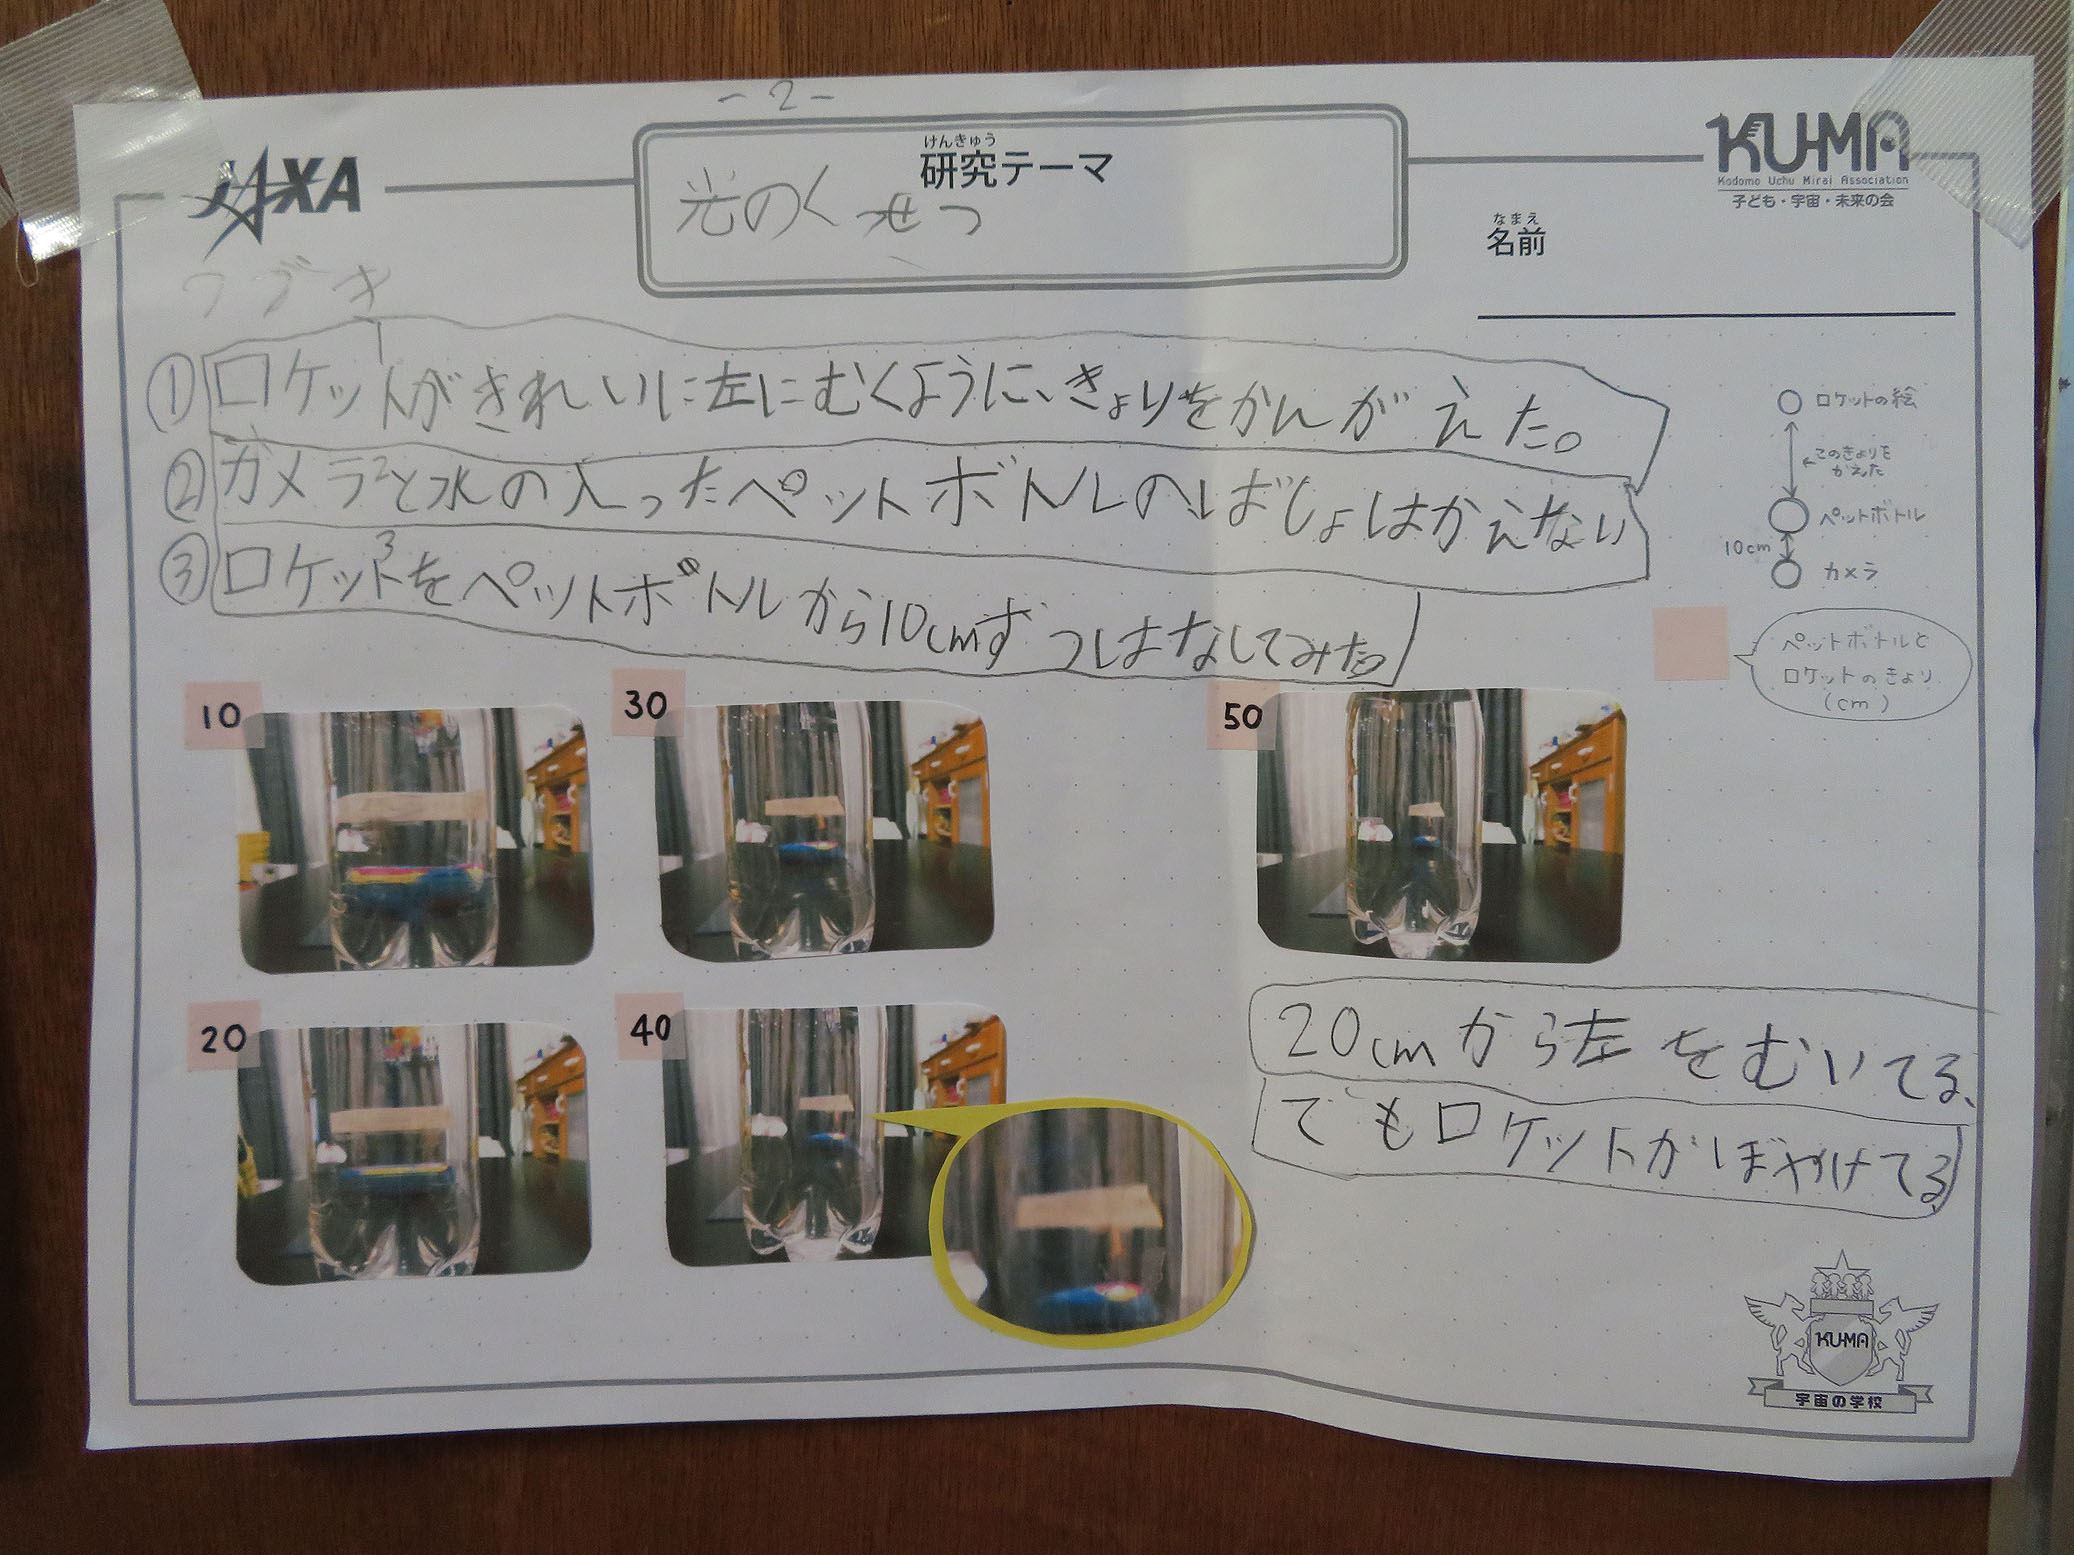 -2-
JAXA
けんきゅう
研究テーマ
光のくせつ
KU-MA
Kodomo Uchu Mirai Association
子ども・宇宙・未来の会
なまえ
名前
つづき
① ロケットがきれいに左にむくように、きょりをかんがえた。
② カメラと水の入ったペットボトルのばしょはかえない
③ ロケットをペットボトルから10cmずつはなしてみた。
ロケットの絵
このきょりを
かえた
ペットボトル
10cm
カメラ
ペットボトルと
ロケットのきょり
(cm)
10
30
50
20
40
20cmから左をむいてる、
でもロケットがぼやけてる
KU-MA
宇宙の学校